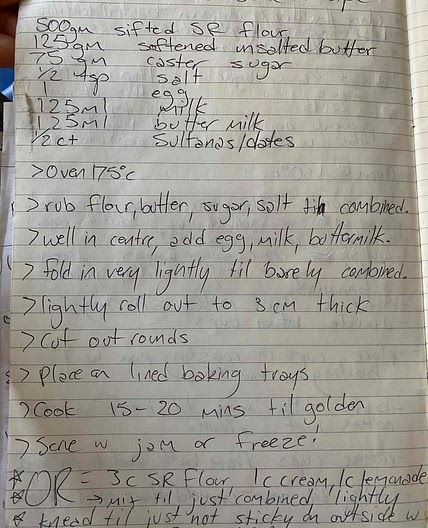 500gm sifted SR flour
125gm softened unsalted butter
75gm caster sugar
1/2 tsp salt
1 egg
125ml milk
125ml butter milk
1/2 ct Sultanas/dates
>Oven 175°c
>rub flour, butter, sugar, salt til combined.
>well in centre, add egg, milk, buttermilk.
>fold in very lightly til barely combined.
>lightly roll out to 3cm thick
>cut out rounds
>place on lined baking trays
>Cook 15-20 mins til golden
>Serve w jam or freeze!
*OR = 3c SR Flour 1c cream, 1c lemonade
* → mix til just combined lightly
* knead til just not sticky on outside w